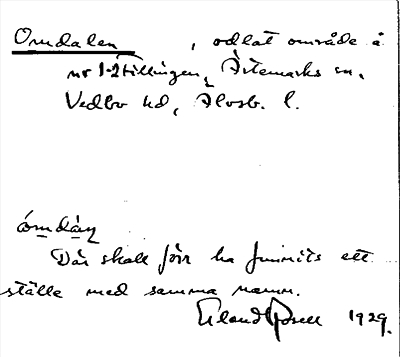 Omdalen , odlat område å
nr 1-2 Tillingen, Ärtemarks sn,
Vedbo hd, Älvsb. l.
ómdàn
Där skall förr ha funnits ett
ställe med samma namn.
Erland Rosell 1929.